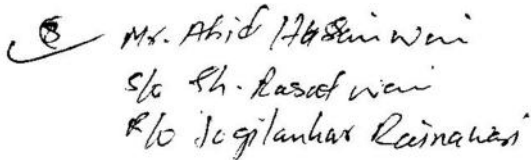 8 Mr. Abid Hussain wani
S/o Sh. Rasool wani
R/o Jogilankar Rainawari